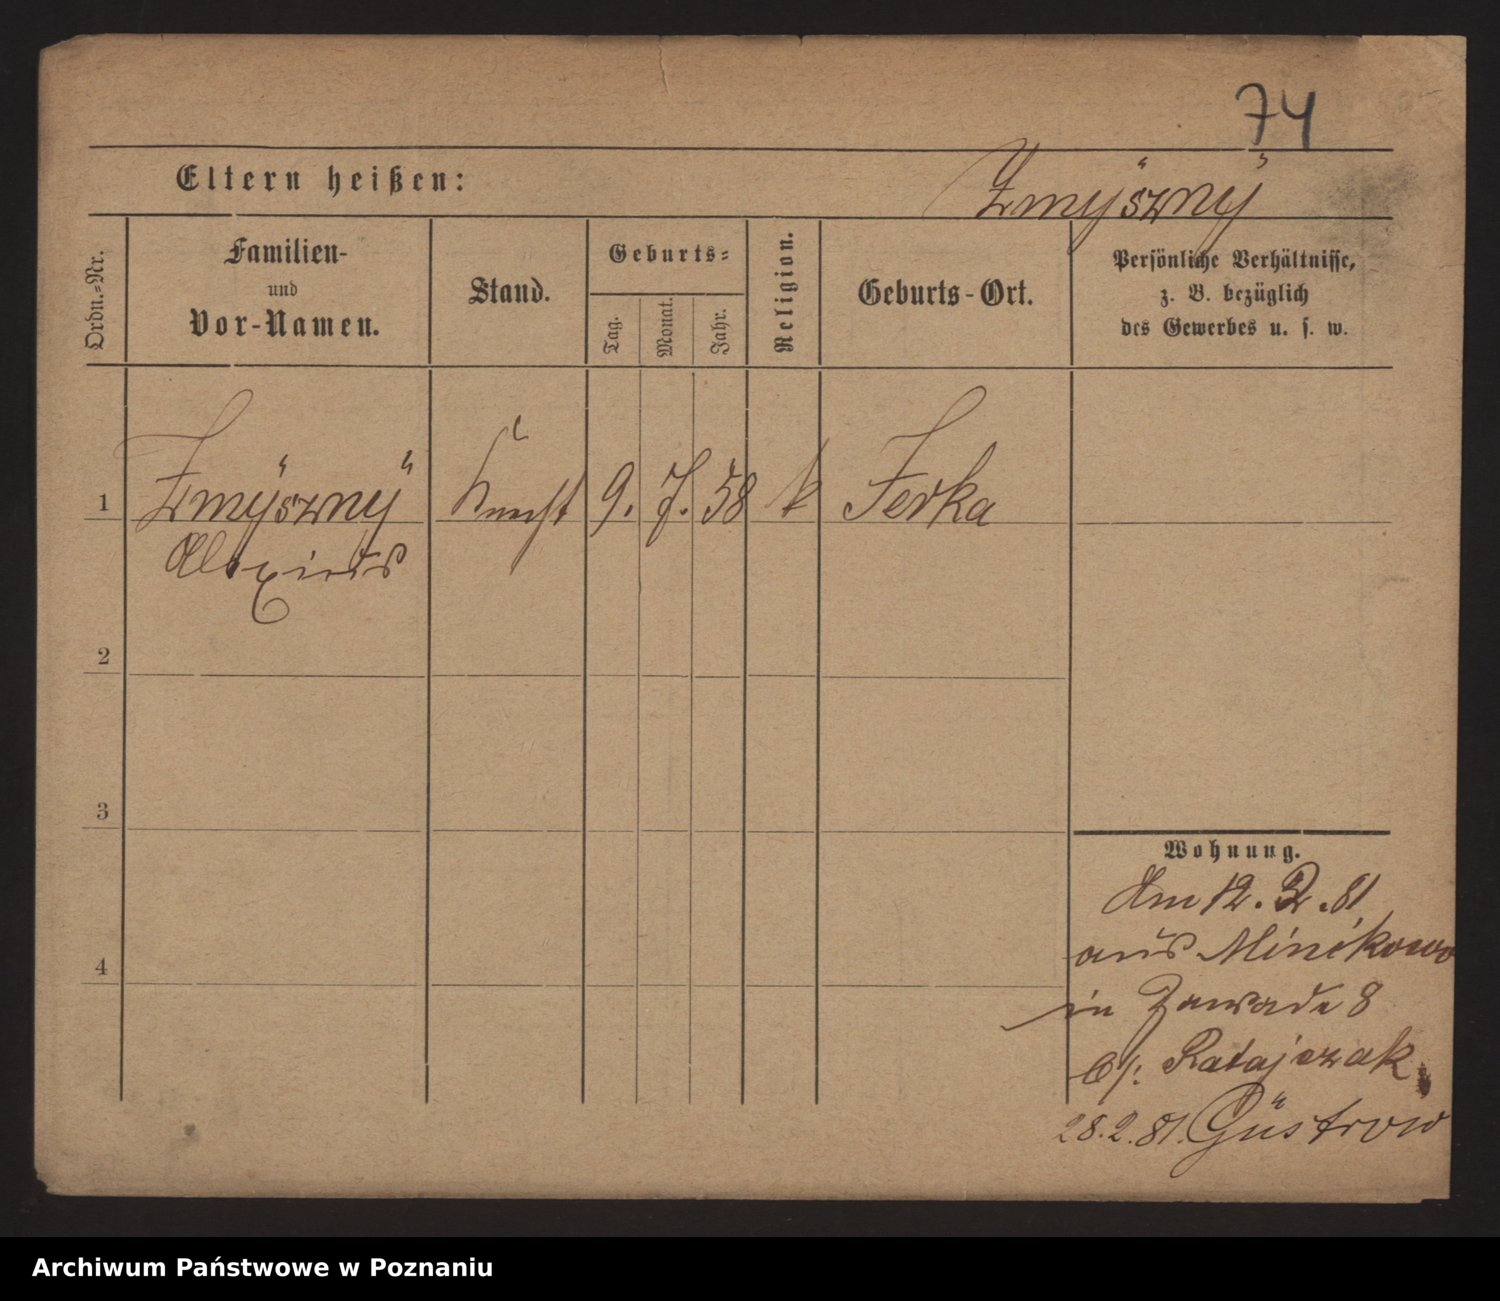 74
Eltern heißen:
Zmÿsznÿ
Ordn.-Nr.
Familien-
und
Vor-Namen.
Stand.
Geburts-
Tag.
Monat.
Jahr.
Religion.
Geburts-Ort.
Persönliche Verhältnisse,
z. B. bezüglich
des Gewerbes u. s. w.
1 Zmÿsznÿ Knecht 9. 7. 58 k Jerka
Alexius
2
3
4
Wohnung.
Am 12. 2. 81
aus Minikowo
in Zawade 8
b/: Ratajczak
28.2.81. Güstrow
Archiwum Państwowe w Poznaniu